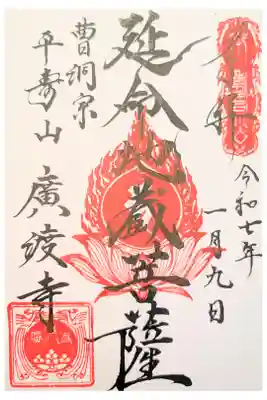 奉拝
令和七年
一月九日
延命地蔵菩薩
曹洞宗
平壽山 廣渡寺